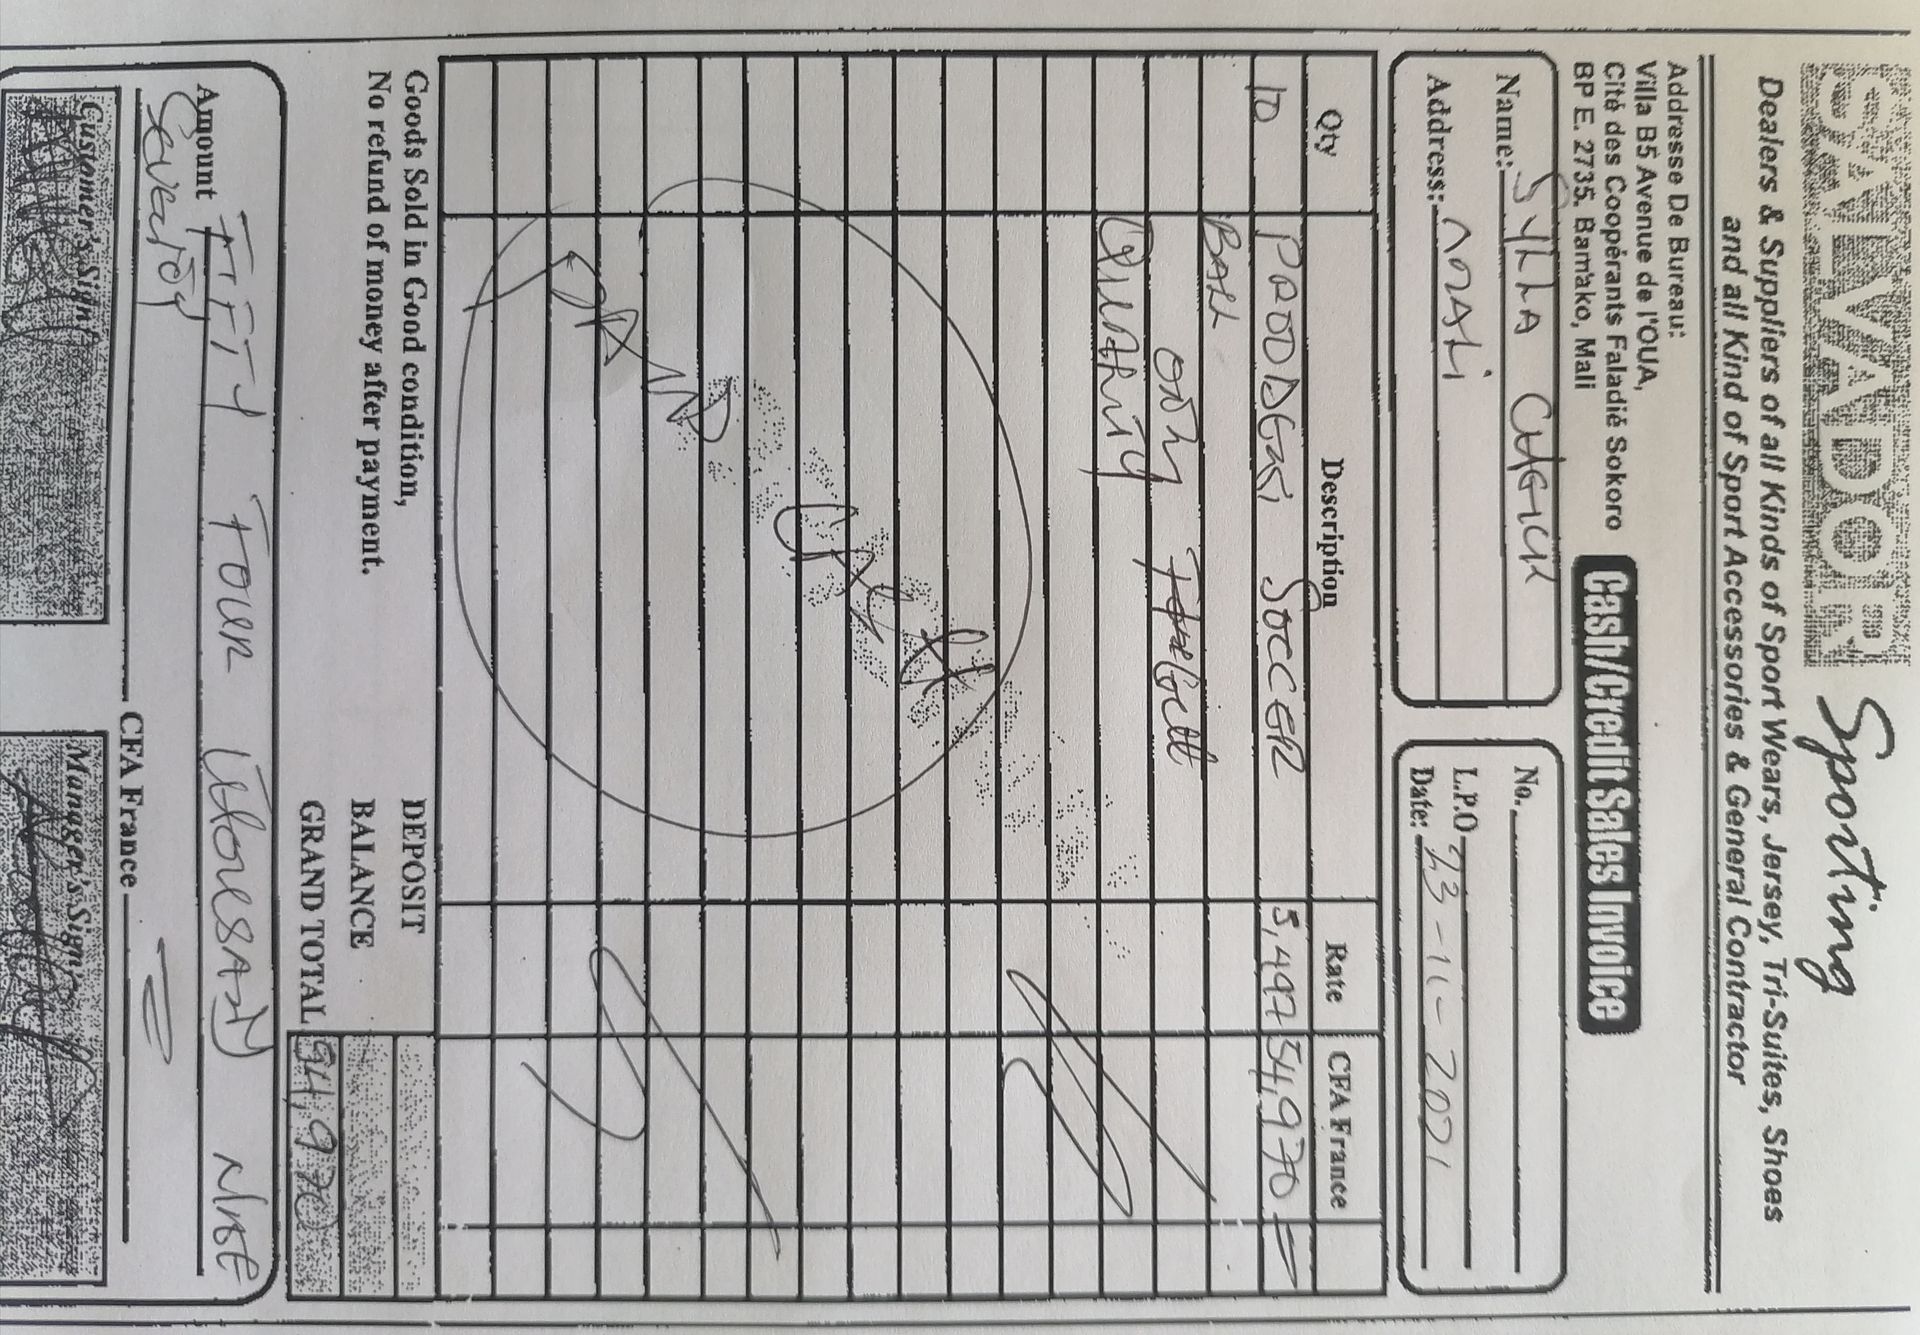 SALVADOR Sporting
Dealers & Suppliers of all Kinds of Sport Wears, Jersey, Tri-Suites, Shoes
and all Kind of Sport Accessories & General Contractor
Addresse De Bureau:
Villa B5 Avenue de l'OUA,
Cité des Coopérants Faladié Sokoro
BP E. 2735. Bamako, Mali
Cash/Credit Sales Invoice
Name: SYLLA
Address: MALI
No.
L.P.O.
Date: 23-11-2021
Qty Description Rate CFA France
10 PRODDEGI SOCCER 5,497 54,970=
BALL
ONLY
QUALITY
PAID
CASH
Goods Sold in Good condition,
No refund of money after payment.
DEPOSIT
BALANCE
GRAND TOTAL 54,970
Amount FIFTY FOUR THOUSAND NINE
Seventy
CFA France
Customer's Sign
Manager's Sign